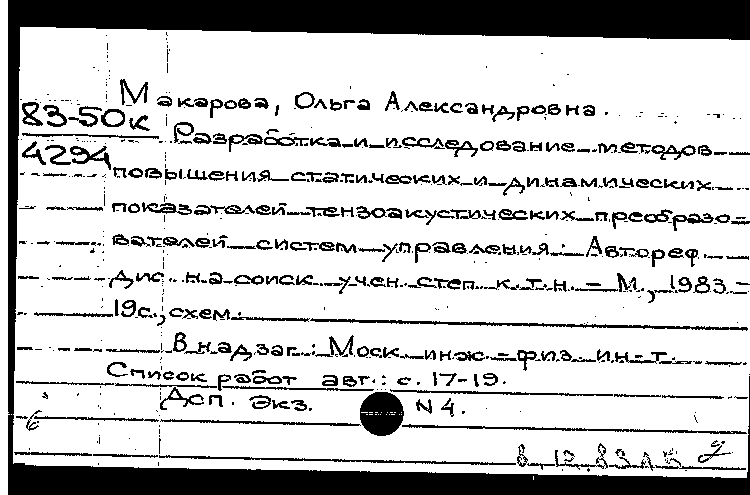 Макарова, Ольга Александровна.
83-50к
4294
Разработка и исследование методов
повышения статических и динамических
показателей тензоакустических преобразо-
вателей систем управления: Автореф.
дис. на соиск. учен. степ. к.т.н. - М., 1983 -
19с., схем.
В надзаг.: Моск. инж.-физ. ин-т.
Список работ авт.: с. 17-19.
Доп. экз. N 4.